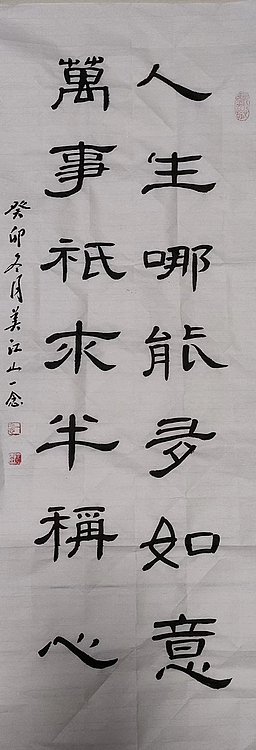 人生哪能多如意
萬事祇求半稱心
癸卯冬月美江山一念